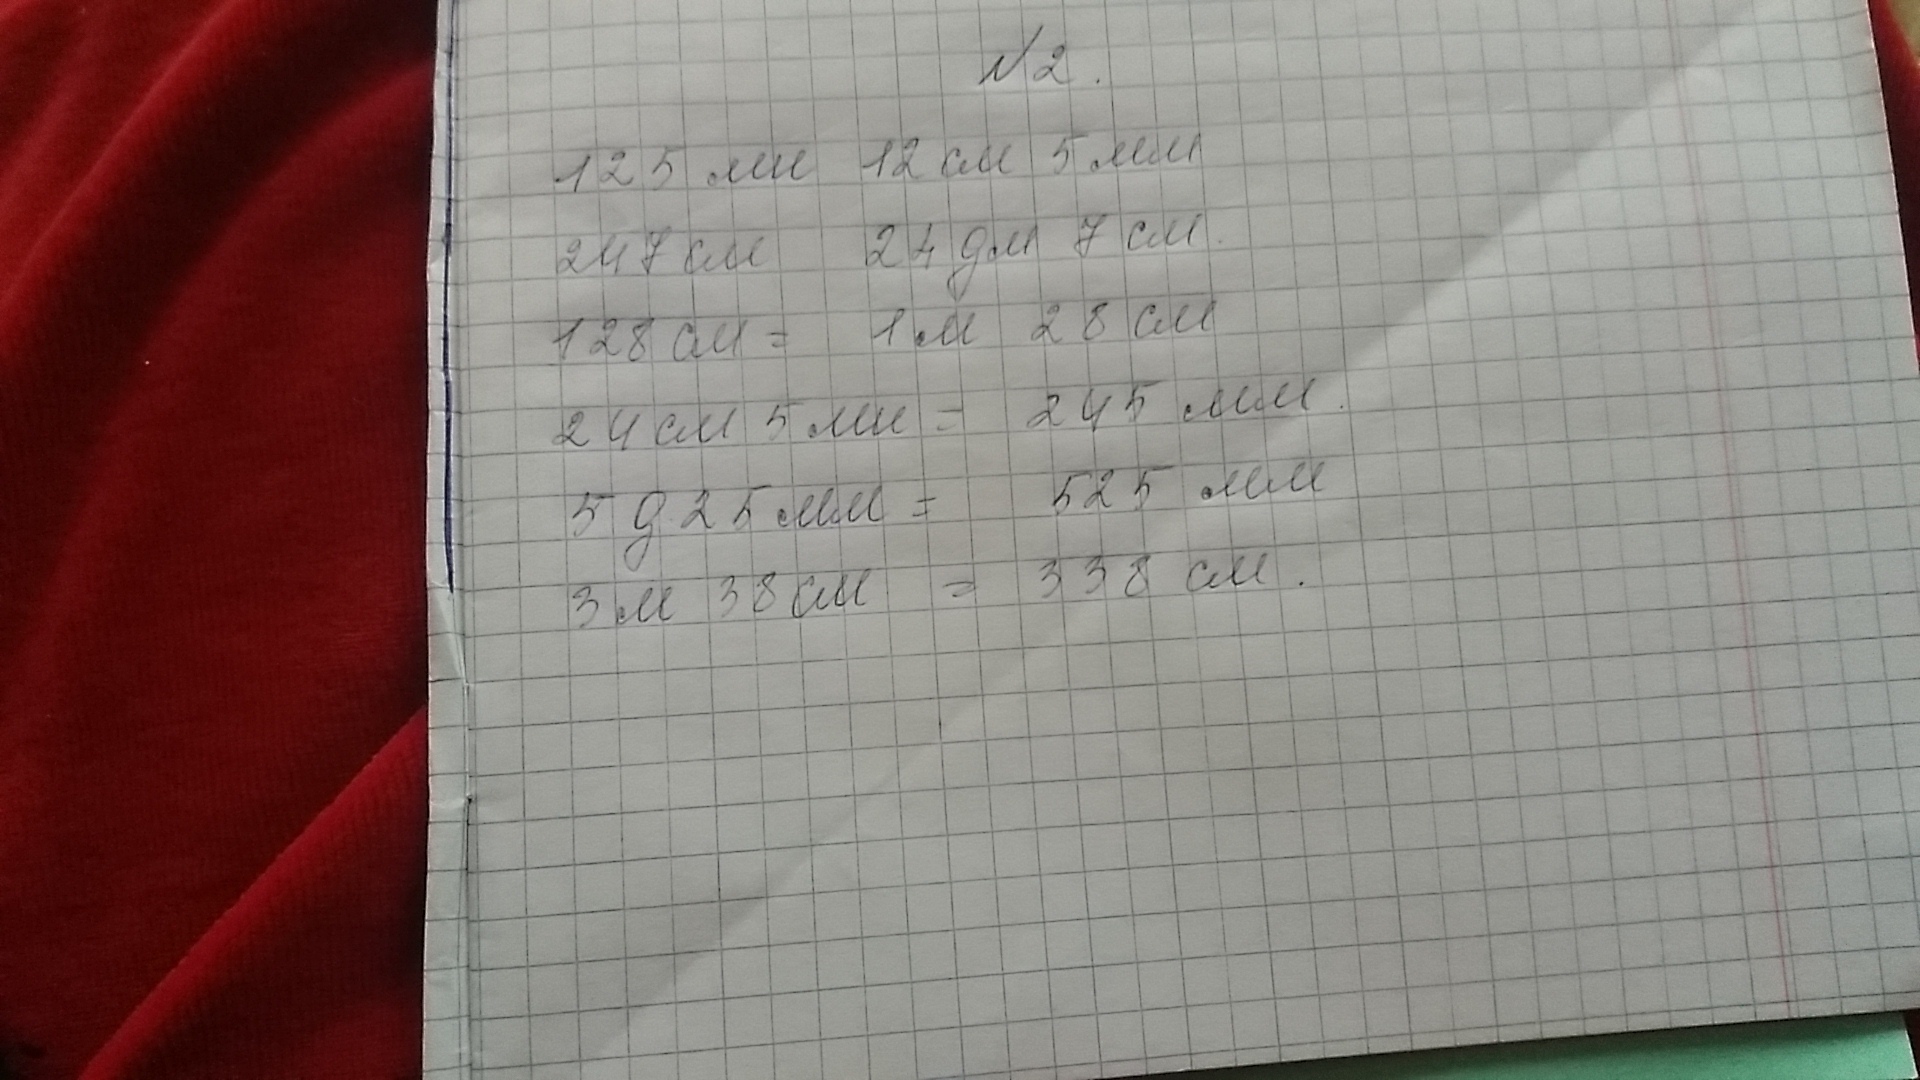 №2.
125 мм 12 см 5 мм
247 см 24 дм 7 см.
128 см = 1 м 28 см
24 см 5 мм = 245 мм.
5 д. 25 мм = 525 мм
3 м 38 см = 338 см.